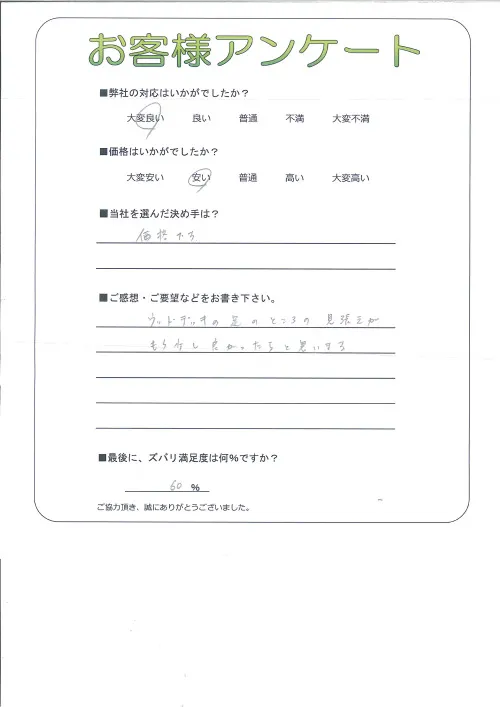 お客様アンケート
■弊社の対応はいかがでしたか？
大変良い 良い 普通 不満 大変不満
■価格はいかがでしたか？
大変安い 安い 普通 高い 大変高い
■当社を選んだ決め手は？
価格です
■ご感想・ご要望などをお書き下さい。
ウッドデッキの足のところの見張えが
もう少し良かったらと思います
■最後に、ズバリ満足度は何％ですか？
60 ％
ご協力頂き、誠にありがとうございました。